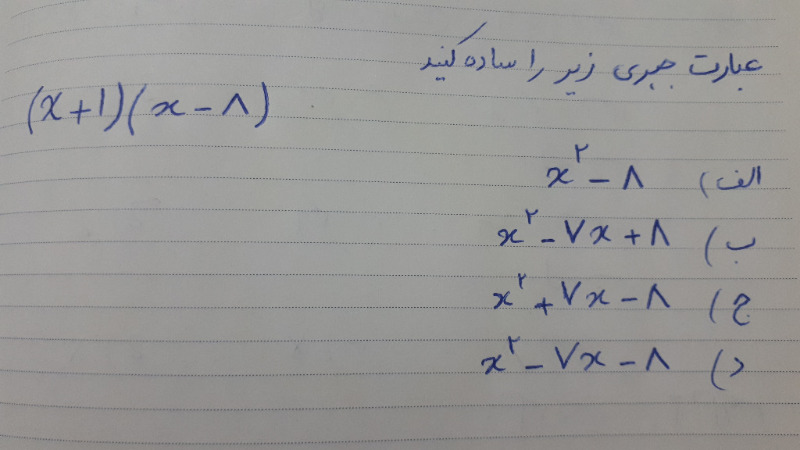 عبارت جبری زیر را ساده کنید
(x+۱)(x-۸)
الف) x²-۸
ب) x²-۷x+۸
ج) x²+۷x-۸
د) x²-۷x-۸